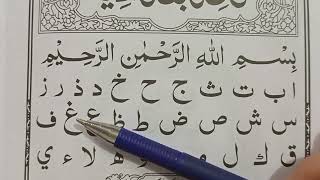 بِسْمِ اللهِ الرَّحْمٰنِ الرَّحِيْمِ
ا ب ت ث ج ح خ د ذ ر ز
س ش ص ض ط ظ ع غ ف
ق ك ل و ه لا ء ي